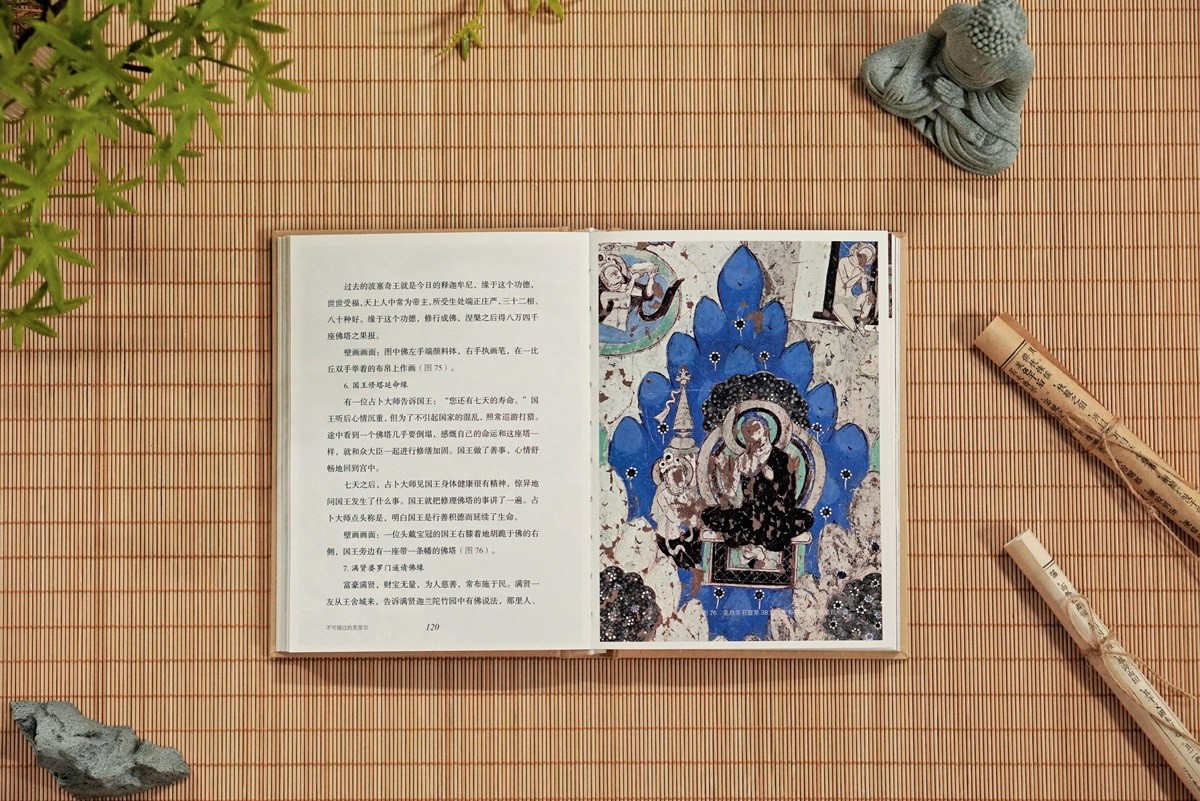 过去的波塞奇王就是今日的释迦牟尼，缘于这个功德，
世世受福，天上人中常为帝主，所受生处端正庄严，三十二相、
八十种好。缘于这个功德，修行成佛，涅槃之后得八万四千
座佛塔之果报。
壁画画面：图中佛左手端颜料钵，右手执画笔，在一比
丘双手举着的布帛上作画（图 75）。
6. 国王修塔延命缘
有一位占卜大师告诉国王：“您还有七天的寿命。”国
王听后心情沉重，但为了不引起国家的混乱，照常巡游打猎。
途中看到一个佛塔几乎要倒塌，感慨自己的命运和这座塔一
样，就和众大臣一起进行修缮加固。国王做了善事，心情舒
畅地回到宫中。
七天之后，占卜大师见国王身体健康很有精神，惊异地
问国王发生了什么事。国王就把修理佛塔的事讲了一遍。占
卜大师点头称是，明白国王是行善积德而延续了生命。
壁画画面：一位头戴宝冠的国王右膝着地胡跪于佛的右
侧，国王旁边有一座带一条幡的佛塔（图 76）。
7. 满贤婆罗门遥请佛缘
富豪满贤，财宝无量，为人慈善，常布施于民。满贤一
友从王舍城来，告诉满贤迦兰陀竹园中有佛说法，那里人、
不可错过的克孜尔
120
76 克孜尔石窟第 38